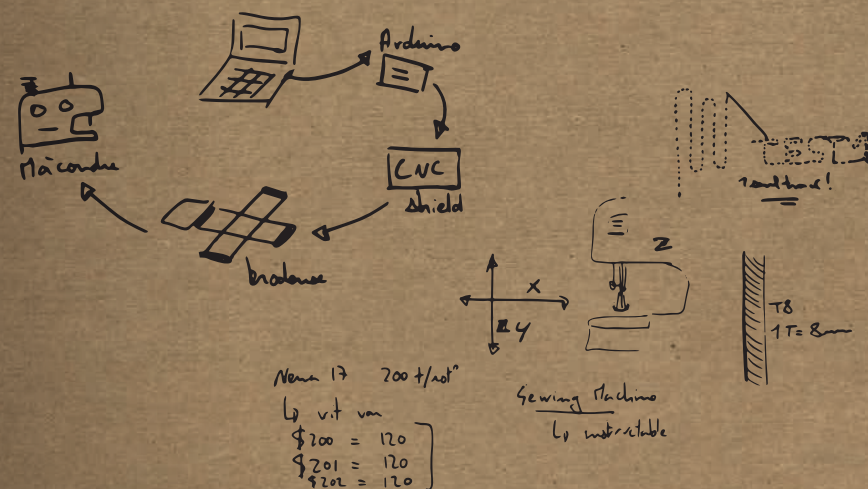 Arduino
CNC
shield
brodeuse
Mà coudre
TEST
1 seul trait!
Z
X
Y
T8
1T = 8mm
Nema 17 200 t/rot°
↳ vit
$200 = 120
$201 = 120
$202 = 120
Sewing Machine
↳ instructable